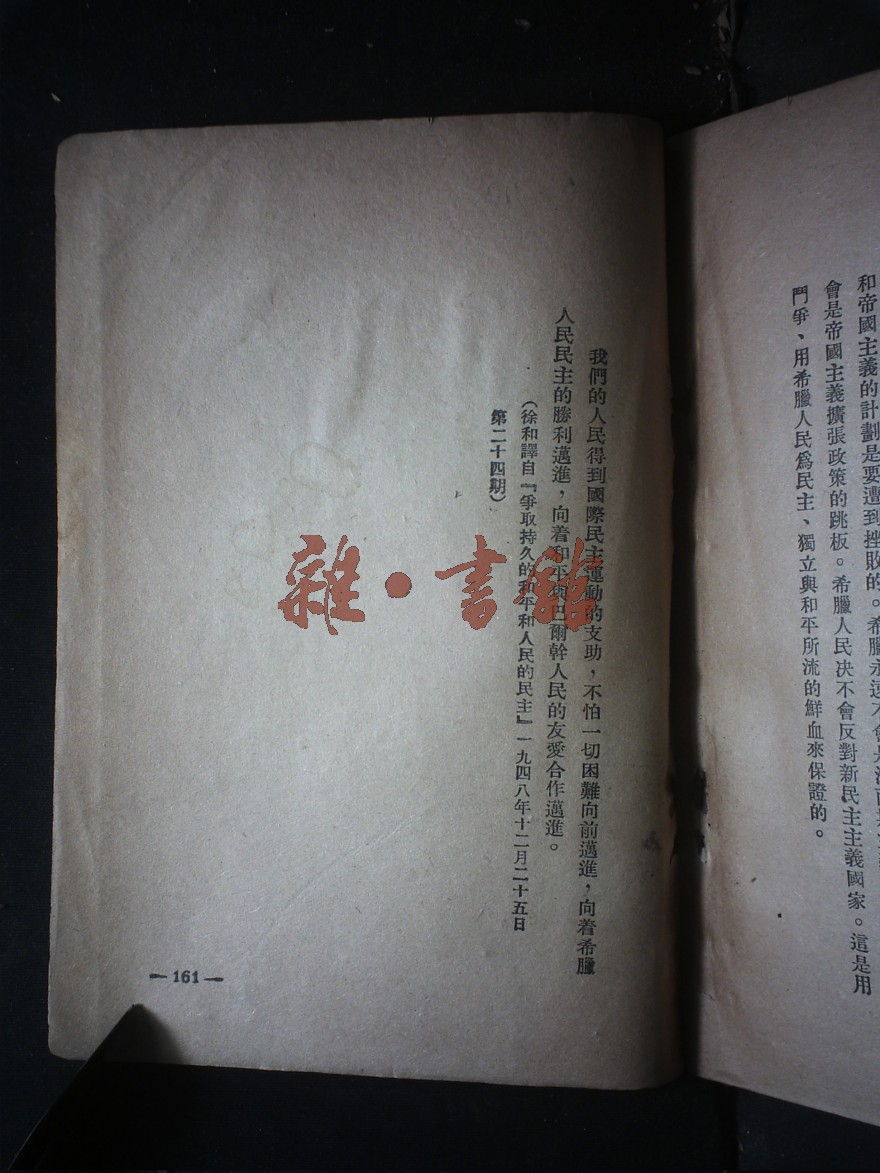 和帝國主義的計劃是要遭到挫敗的。希臘永遠不會是
會是帝國主義擴張政策的跳板。希臘人民決不會反對新民主主義國家。這是用
鬥爭、用希臘人民爲民主、獨立與和平所流的鮮血來保證的。
我們的人民得到國際民主運動的支助，不怕一切困難向前邁進，向着希臘
人民民主的勝利邁進，向着和平與巴爾幹人民的友愛合作邁進。
（徐和譯自『爭取持久的和平和人民的民主』一九四八年十二月二十五日
第二十四期）
— 161 —
雜·書館